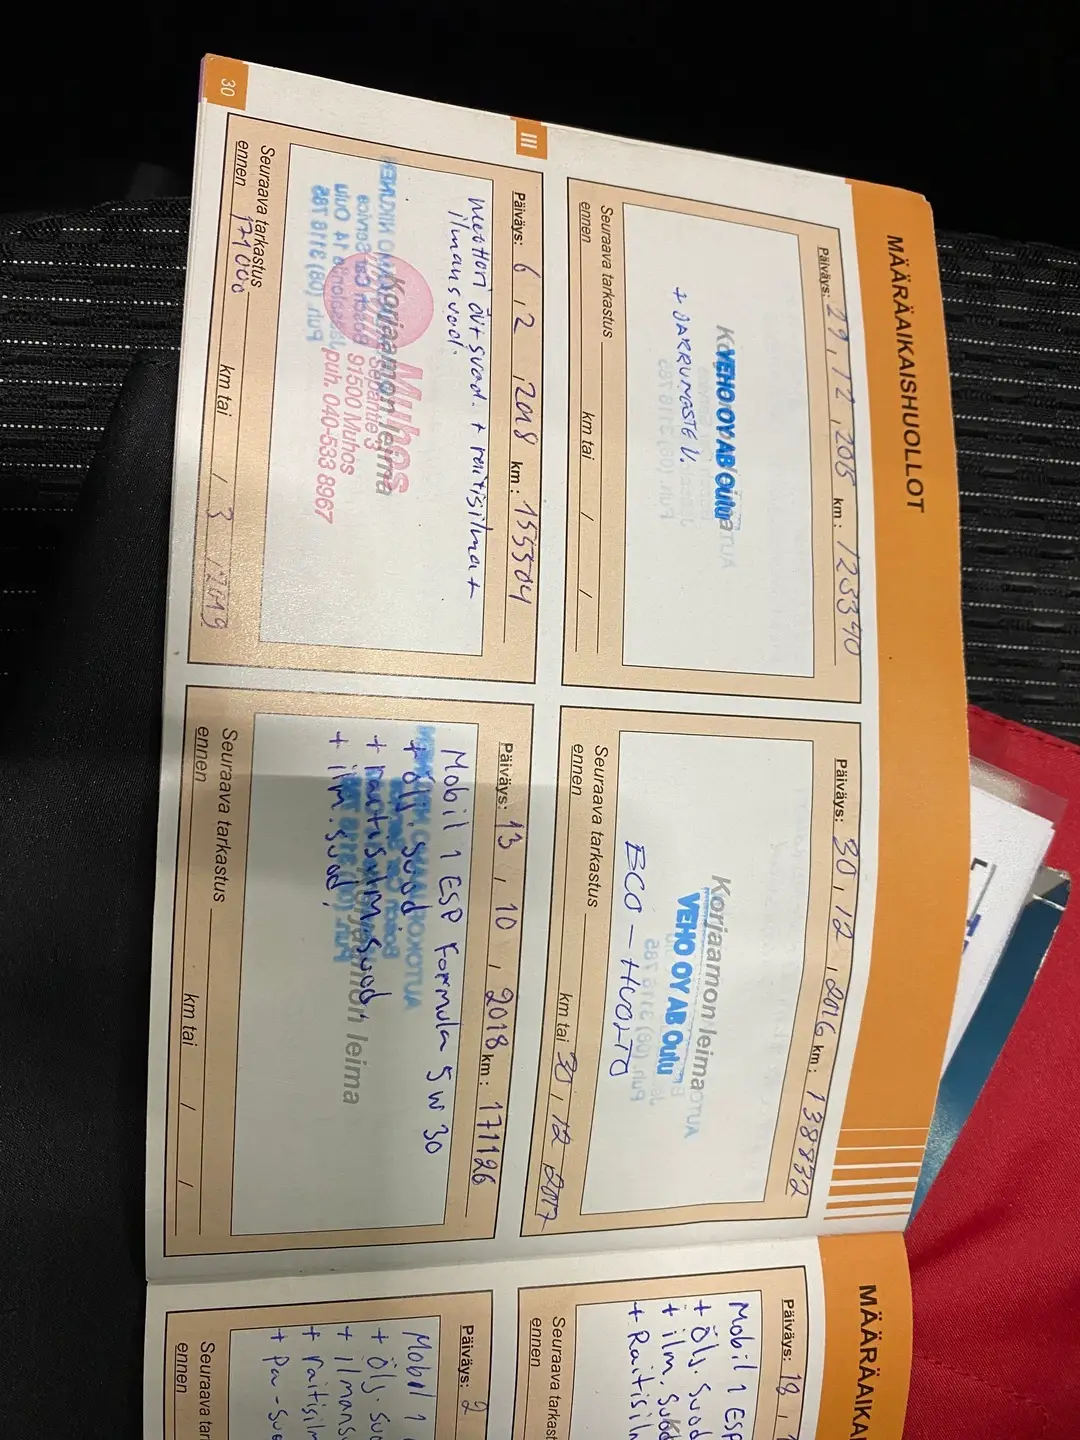 MÄÄRÄAIKAISHUOLLOT
Päiväys: 29 , 12 , 2015 km: 123390
VEHO OY AB Oulu
+ JARRUNESTE V.
Seuraava tarkastus
ennen km tai / /
Päiväys: 30 , 12 , 2016 km: 138832
Korjaamon leima
VEHO OY AB Oulu
BCO - HUOLTO
Seuraava tarkastus
ennen km tai 30 , 12 2017
III
Päiväys: 6 , 2 , 2018 km: 155504
moottori öl+suod. + raitisilma+
ilmansuod.
Korjaamon leima
Muhos
91500 Muhos
puh. 040-533 8967
Seuraava tarkastus
ennen 171000 km tai / 3 / 2019
Päiväys: 13 , 10 , 2018 km: 171126
Mobil 1 ESP Formula 5W30
+ Öljs. suod
+ raitisilm.suod.
+ ilm. suod.
Korjaamon leima
Seuraava tarkastus
ennen km tai / /
30
MÄÄRÄAIKA
Päiväys: 18 , 1
Mobil 1 ESP
+ Öljs. suod
+ ilm. suod
+ Raitisilm
Seuraava tarkast
ennen
Päiväys: 2
Mobil 1
+ Öljs. suo
+ ilmans
+ raitisilm
+ pa-suo
Seuraava tar
ennen